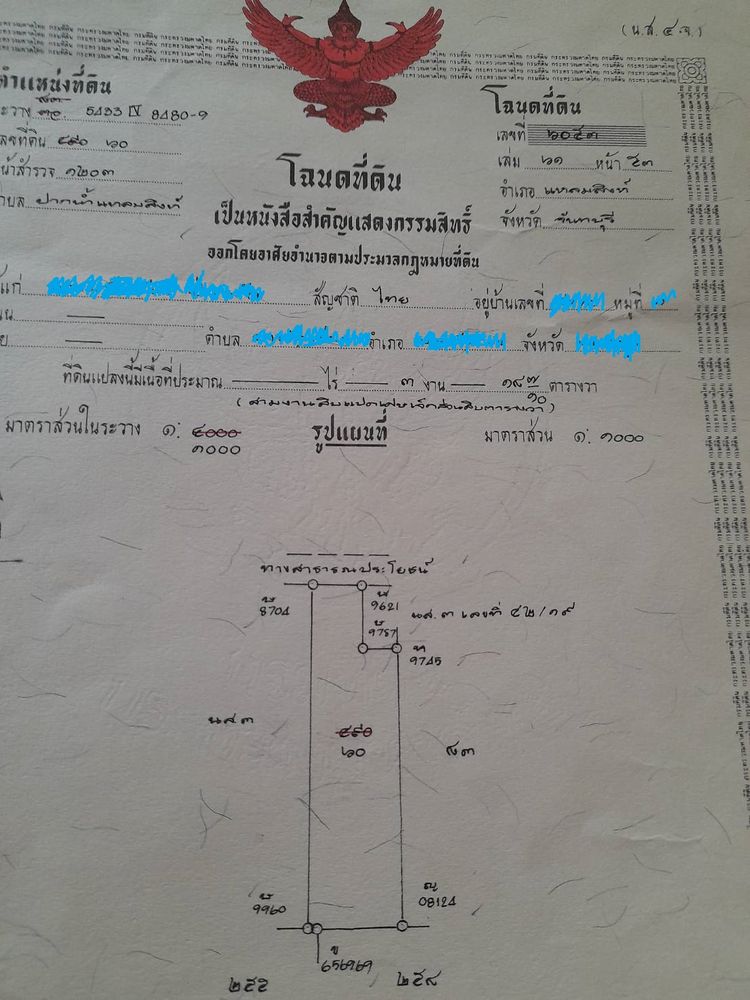 (น.ส. ๔ จ.)
ตำแหน่งที่ดิน
ระวาง 5433 IV 8480-9
เลขที่ดิน ๔๙๐ ๖๐
หน้าสำรวจ ๑๒๐๓
ตำบล ปากน้ำแหลมสิงห์
โฉนดที่ดิน
เลขที่ ๖๐๕๓
เล่ม ๖๑ หน้า ๕๓
อำเภอ แหลมสิงห์
จังหวัด จันทบุรี
โฉนดที่ดิน
เป็นหนังสือสำคัญแสดงกรรมสิทธิ์
ออกโดยอาศัยอำนาจตามประมวลกฎหมายที่ดิน
ให้แก่ สัญชาติ ไทย อยู่บ้านเลขที่ หมู่ที่
ตำบล อำเภอ จังหวัด
ที่ดินแปลงนี้มีเนื้อที่ประมาณ — ไร่ — ๓ งาน — ๑๘ ๗/๑๐ ตารางวา
(สามงานสิบแปดเศษเจ็ดส่วนสิบตารางวา)
มาตราส่วนในระวาง ๑: ๔๐๐๐ รูปแผนที่ มาตราส่วน ๑: ๑๐๐๐
๑๐๐๐
ทางสาธารณประโยชน์
8704 9621
น.ส. ๓ เลขที่ ๔๒/๑๙
9787
9745
น.ส. ๓
๔๙๐
๖๐
๕๓
9960
08124
656969
๒๕๕ ๒๕๘